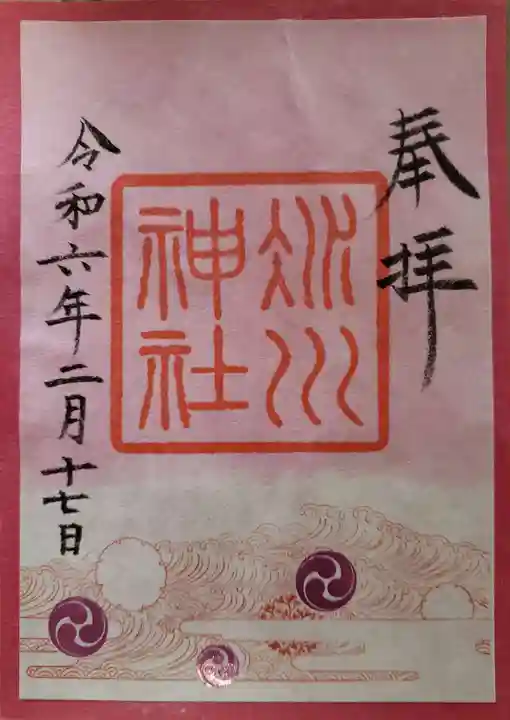 奉拝
冰川
神社
令和六年二月十七日